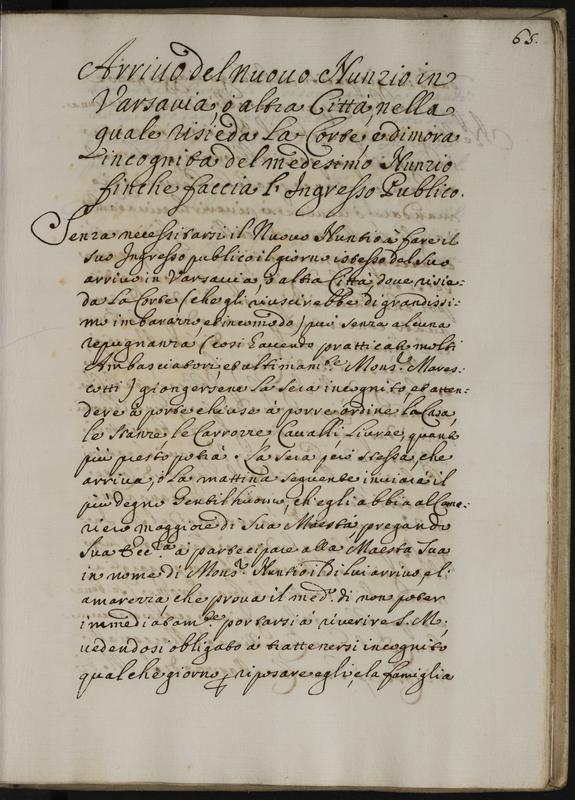 65.
Arrivo del nuovo Nunzio in
Varsavia, ò altra Città, nella
quale risieda La Corte, e dimora
incognita del medesimo Nunzio
finche faccia l'Ingresso Publico.
Senza necessitarsi il Nuovo Nuntio à fare il
suo Ingresso publico il giorno istesso del suo
arrivo in Varsavia, ò altra Città dove risie-
da La Corte (che gli riuscirebbe di grandissi-
mo imbarazzo, et incomodo) può senza alcuna
repugnanza (così havendo pratticato molti
Ambasciatori, et ultimam.te Mons.r Mares-
cotti) giongersene La sera incognito, et atten-
dere à porte chiuse à porre ordine la Casa,
le stanze le Carrozze Cavalli Livree, quanto
più presto potrà. La sera però stessa, che
arriva, ò La mattina seguente inviarà il
più degno Gentilhuomo, ch'egli abbia al Came-
riero maggiore di Sua Maestà, pregando
Sua Ecc.za à partecipare alla Maestà Sua
in nome di Mons.r Nuntio il di Lui arrivo, e l'
amarezza, che prova il med.o di non poter
immediatam.te portarsi à riverire S. M.,
vedendosi obligato à trattenersi incognito
qualche giorno p riposare egli, e la famiglia